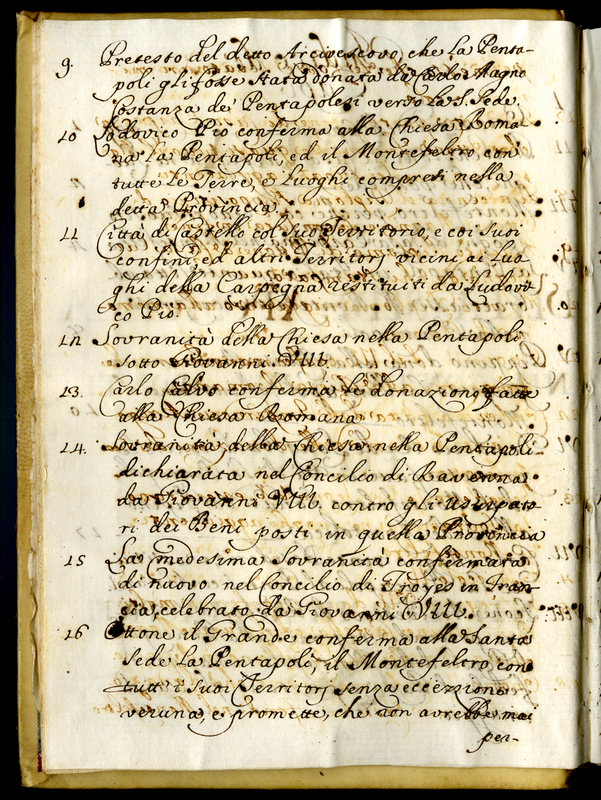 9. Pretesto del detto Arcivescovo, che la Penta-
poli gli fosse stata donata da Carlo Magno
Costanza de Pentapolesi verso la S. Sede.
10 Lodovico Pio conferma alla Chiesa Roma-
na la Pentapoli, ed il Montefeltro con
tutte le Terre, e Luoghi compresi nella
detta Provincia.
11 Città di Castello col suo Territorio, e coi suoi
confini, ed altri Territorj vicini ai Luo
ghi della Carpegna restituiti da Ludovi
co Pio.
12 Sovranità della Chiesa nella Pentapoli
sotto Giovanni VIII.
13. Carlo Calvo conferma le donazioni fatte
alla Chiesa Romana
14. Sovranità della Chiesa nella Pentapoli
dichiarata nel Concilio di Ravenna
da Giovanni VIII contro gli usurpato
ri dei Beni posti in quella Provincia
15 La medesima Sovranità confermata
di nuovo nel Concilio di Troyes in Fran
cia, celebrato da Giovanni VIII.
16 Ottone il Grande conferma alla Santa
Sede la Pentapoli, il Montefeltro con
tutti i suoi Territorj senza eccezzione
veruna, e promette, che non avrebbe mai
per-